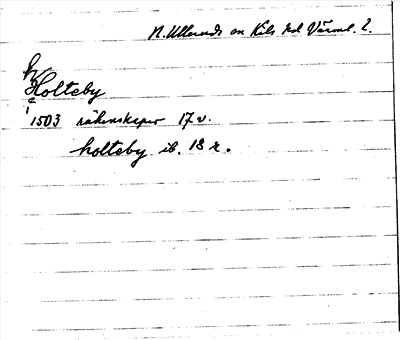 N. Ulleruds sn Kils hd Värml. l.
Holteby
1503 räkenskaper 17 v.
holteby ib. 18 r.